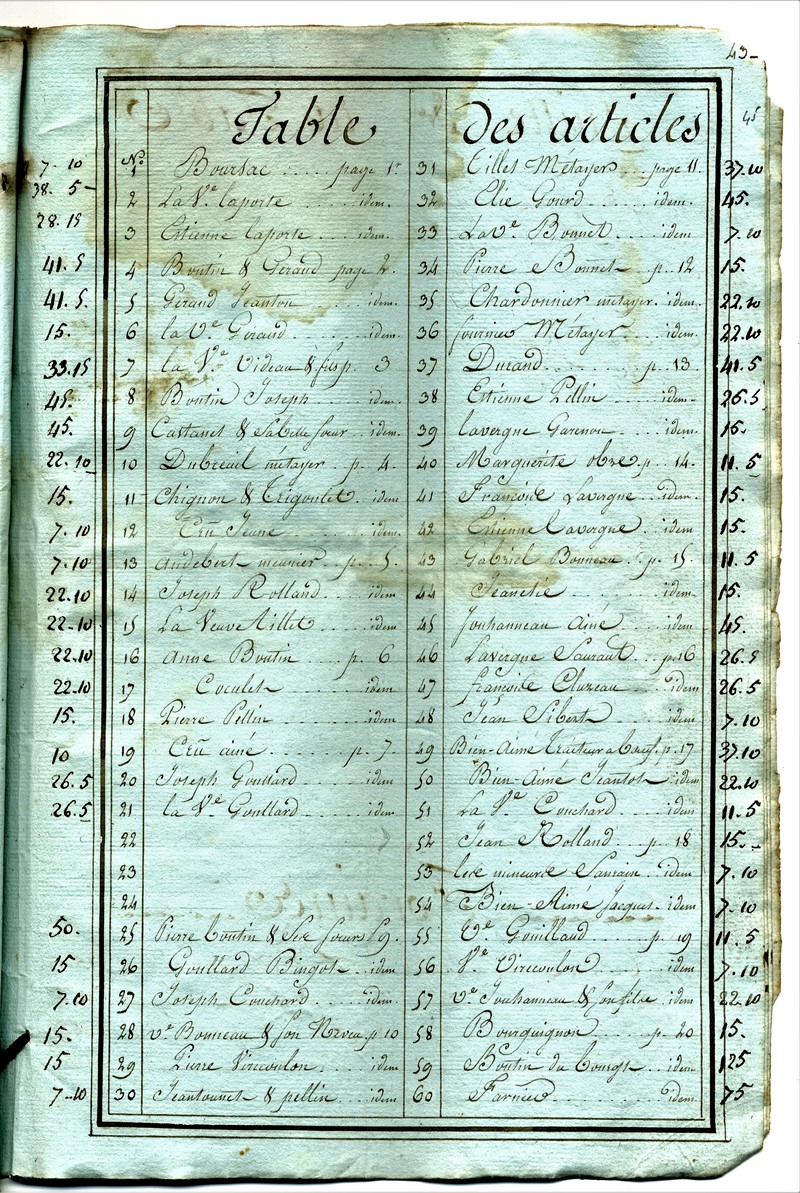 43
45
Table des articles
7-10 No. 1 Boursac ..... page 1r
38. 5 2 La Ve. laporte ....... idem.
28.15 3 Estienne laporte ... idem.
41. 5 4 Boutin & Geraud page 2.
41. 5. 5 Geraud Jeanton ..... idem.
15. 6 la Ve. Geraud ....... idem.
33.15 7 la Ve. Videau & fils p. 3
45. 8 Boutin Joseph ...... idem.
45. 9 Castanet & sa belle soeur .. idem.
22.10 10 Dubreuil métayer .. p. 4.
15. 11 Chignon & Trigoulet . idem
7.10 12 Cru Jeune ......... idem.
7.10 13 audebert meunier . p. 5.
22.10 14 Joseph Rolland .... idem
22.10 15 La Veuve tillet ..... idem
22.10 16 Anne Boutin .... p. 6
22.10 17 Coculet ......... idem
15. 18 Pierre Pellin ........ idem
10 19 Cru ainé ........ p. 7.
26.5 20 Joseph Goullard ...... idem
26.5 21 la Ve. Goullard ...... idem
22
23
24
50. 25 Pierre boutin & Ses soeurs p 9.
15 26 Goullard Bingot .. idem
7.10 27 Joseph Couchard .... idem.
15. 28 ve. Bonneau & son Neveu. p 10
15 29 Pierre Vircoulon ..... idem
7..10 30 Jeantounet & pellin ... idem
31 Tillet Métayer .. page 11. 37.10
32 Elie Gourd ..... idem 45.
33 La ve. Bonnet ..... idem 7.10
34 Pierre Bonnet .. p. 12 15.
35 Chardonnier métayer . idem. 22.10
36 fournier Métayer .... idem 22.10
37 Durand ......... p. 13 . 41.5
38 Estienne Pellin .... idem. 26.5
39 lavergne Garenne .. idem. 15.
40 Marguerite obre . p. 14. 11. 5
41 Françoise Lavergne . idem . 15.
42 Estienne Lavergne .. idem 15.
43 Gabriel Bonneau .. p. 15 . 11. 5
44 .......... idem 15.
45 Jouhanneau Ainé ... idem 45.
46 Lavergne .. p.16 26.5
47 françoise Cluzeau ... idem 26.5
48 Jean Sibert ....... idem 7.10
49 Bien-Aimé tracteur a boeuf . p. 17 37.10
50 Bien-aimé Jeantot .. idem 22.10
51 La Ve. Couchard ... idem 11.5
52 Jean Rolland .. p. 18 15.
53 les mineurs .. idem 7.10
54 Bien-Aimé Jacques . idem 7.10
55 Ve. Gouillaud .... p. 19 11. 5
56 Ve. Vircoulon ..... idem 7.10
57 ve. Jouhanneau & son fils . idem 22.10
58 Bourguignon ..... p. 20 15.
59 Boutin du bourg .. idem 125
60 ......... idem. 75